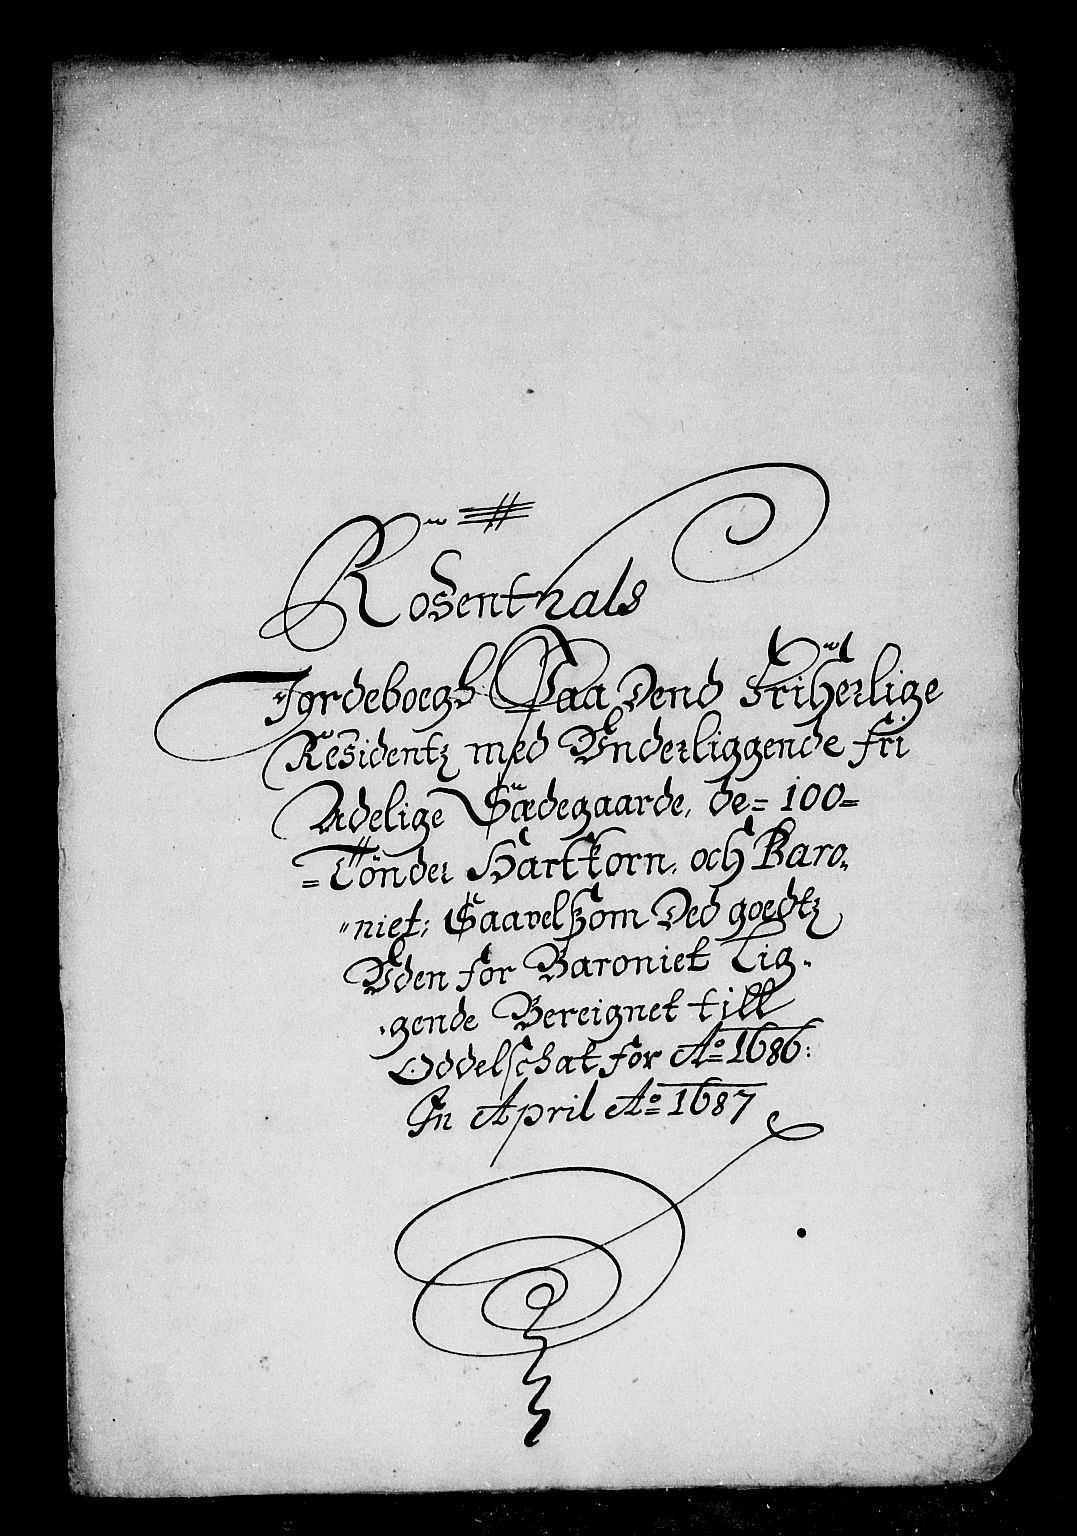 Rosenthals
Jordeboegh Paa Dend Friherlige
Residentz med Underliggende fri
Adelige Sædegaarde, de= 100=
=Tönder Hartkorn, och Baro„
„niet; Saavelsom Ded goedtz
Uden for Baroniet Lig„
„gende Bereignet till
Oddelschat for Ao 1686:
In April Ao 1687